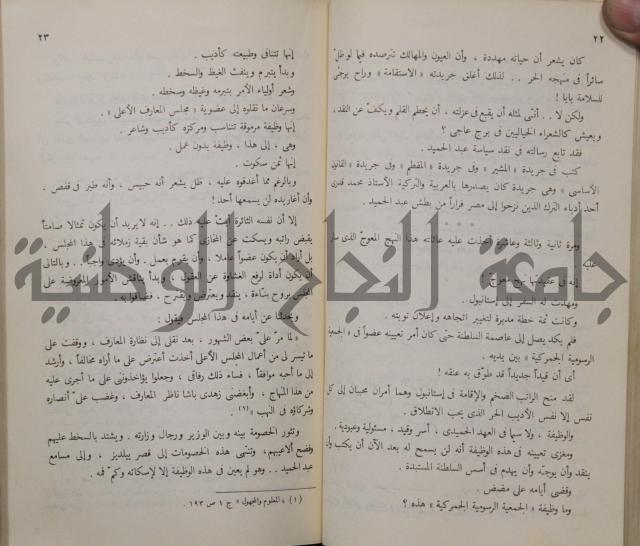 ٢٢
كان يشعر أن حياته مهددة ، وأن العيون والمهالك تترصده فيما لو ظل
سائراً فى منهجه الحر .. لذلك أغلق جريدته « الاستقامة » وراح يرجى
للسلامة بابا !
ولكن لا .. أنّى لمثله أن يقبع فى عزلته ، أن يحطم القلم ويكف عن النقد ،
ويعيش كالشعراء الخياليين فى برج عاجى ؟
فقد تابع رسالته فى نقد سياسة عبد الحميد .
كتب فى جريدة « المشير » وفى جريدة « المقطم » وفى جريدة « القانون
الأساسى » وهى جريدة كان يصدرها بالعربية والتركية الأستاذ محمد قدرى
أحد أدباء الترك الذين نزحوا إلى مصر فراراً من بطش عبد الحميد .
ومرة ثانية وثالثة وعاشرة أنحت عليه عائلته هذا النهج المعوج الذى سار
عليه .
إنه فى عقيدتها نهج معوج !
ومهدت له السفر إلى إستانبول .
وكانت ثمة خطة مدبرة لتغيير اتجاهه وإعلان توبته .
فلم يكد يصل إلى عاصمة السلطنة حتى كان أمر تعيينه عضواً فى « الجمعية
الرسومية الجمركية » بين يديه .
أى أن قيداً جديداً قد طوق به عنقه !
لقد منح الراتب الضخم والإقامة فى إستانبول وهما أمران محببان إلى كل
نفس إلا نفس الأديب الحر الذى يحب الانطلاق .
والوظيفة ، ولا سيما فى العهد الحميدى ، أسر وقيد ، مسئولية وعبودية .
ومغزى تعيينه فى هذه الوظيفة أنه لن يسمح له بعد الآن أن يكتب وأن
ينتقد وأن يوجه وأن يهدم فى أسس السلطنة المستبدة .
وقضى أيامه على مضض .
وما وظيفة « الجمعية الرسومية الجمركية » هذه ؟
٢٣
إنها تتنافى وطبيعته كأديب .
وبدأ يتبرم وينفث الغيظ والسخط .
وشعر أولياء الأمر بتبرمه وغيظه وسخطه .
وسرعان ما نقلوه إلى عضوية « مجلس المعارف الأعلى » .
إنها وظيفة مرموقة تتناسب ومركزه كأديب وشاعر .
وهى ، إلى هذا ، وظيفة بدون عمل .
إنها ثمن سكوت .
وبالرغم مما أغدقوه عليه ، ظل يشعر أنه حبيس ، وأنه طير فى قفص ،
وأن أغاريده لن يسمعها أحد !
إلا أن نفسه الثائرة أبت عليه ذلك .. إنه لا يريد أن يكون تمثالا صامتاً
يقبض راتبه ويسكت عن المخازى كما هو شأن بقية زملائه فى هذا المجلس .
بل أراد أن يكون عضواً عاملا . وأن يقوم بعمل . وأن يؤدى واجباً .. وبالتالى
أن يكون أداة لرفع الغشاوة عن العقول ، وبدأ يناقش الأمور المعروضة على
المجلس بروح بناءة ، ينقد ويعترض ويقترح ، فضاقوا به .
ويحدثنا عن أيامه فى هذا المجلس فيقول :
« لما مر علىّ بعض الشهور ، بعد نقلى إلى نظارة المعارف ، ووقفت على
ما تيسر لى من أعمال المجلس الأعلى أخذت أعترض على ما أراه مخالفاً ، وأرشد
إلى ما أحبه موافقاً ، فساء ذلك رفاقى ، وجعلوا يؤاخذونى على ما أجرى عليه
من هذا المنهاج ، وأبغضنى زهدى باشا ناظر المعارف ، وغضب علىّ أنصاره
وشركاؤه فى النهب » (١) .
وتثور الخصومة بينه وبين الوزير ورجال وزارته . ويشتد بالسخط عليهم
وفضح ألاعيبهم ، وتنتهى هذه الخصومات إلى قصر ييلديز ، وإلى مسامع
عبد الحميد .. وهو لم يعين فى هذه الوظيفة إلا لإسكاته وكم فه .
(١) « المعلوم والمجهول » ج ١ ص ١٩٣ .
جامعة النجاح الوطنية